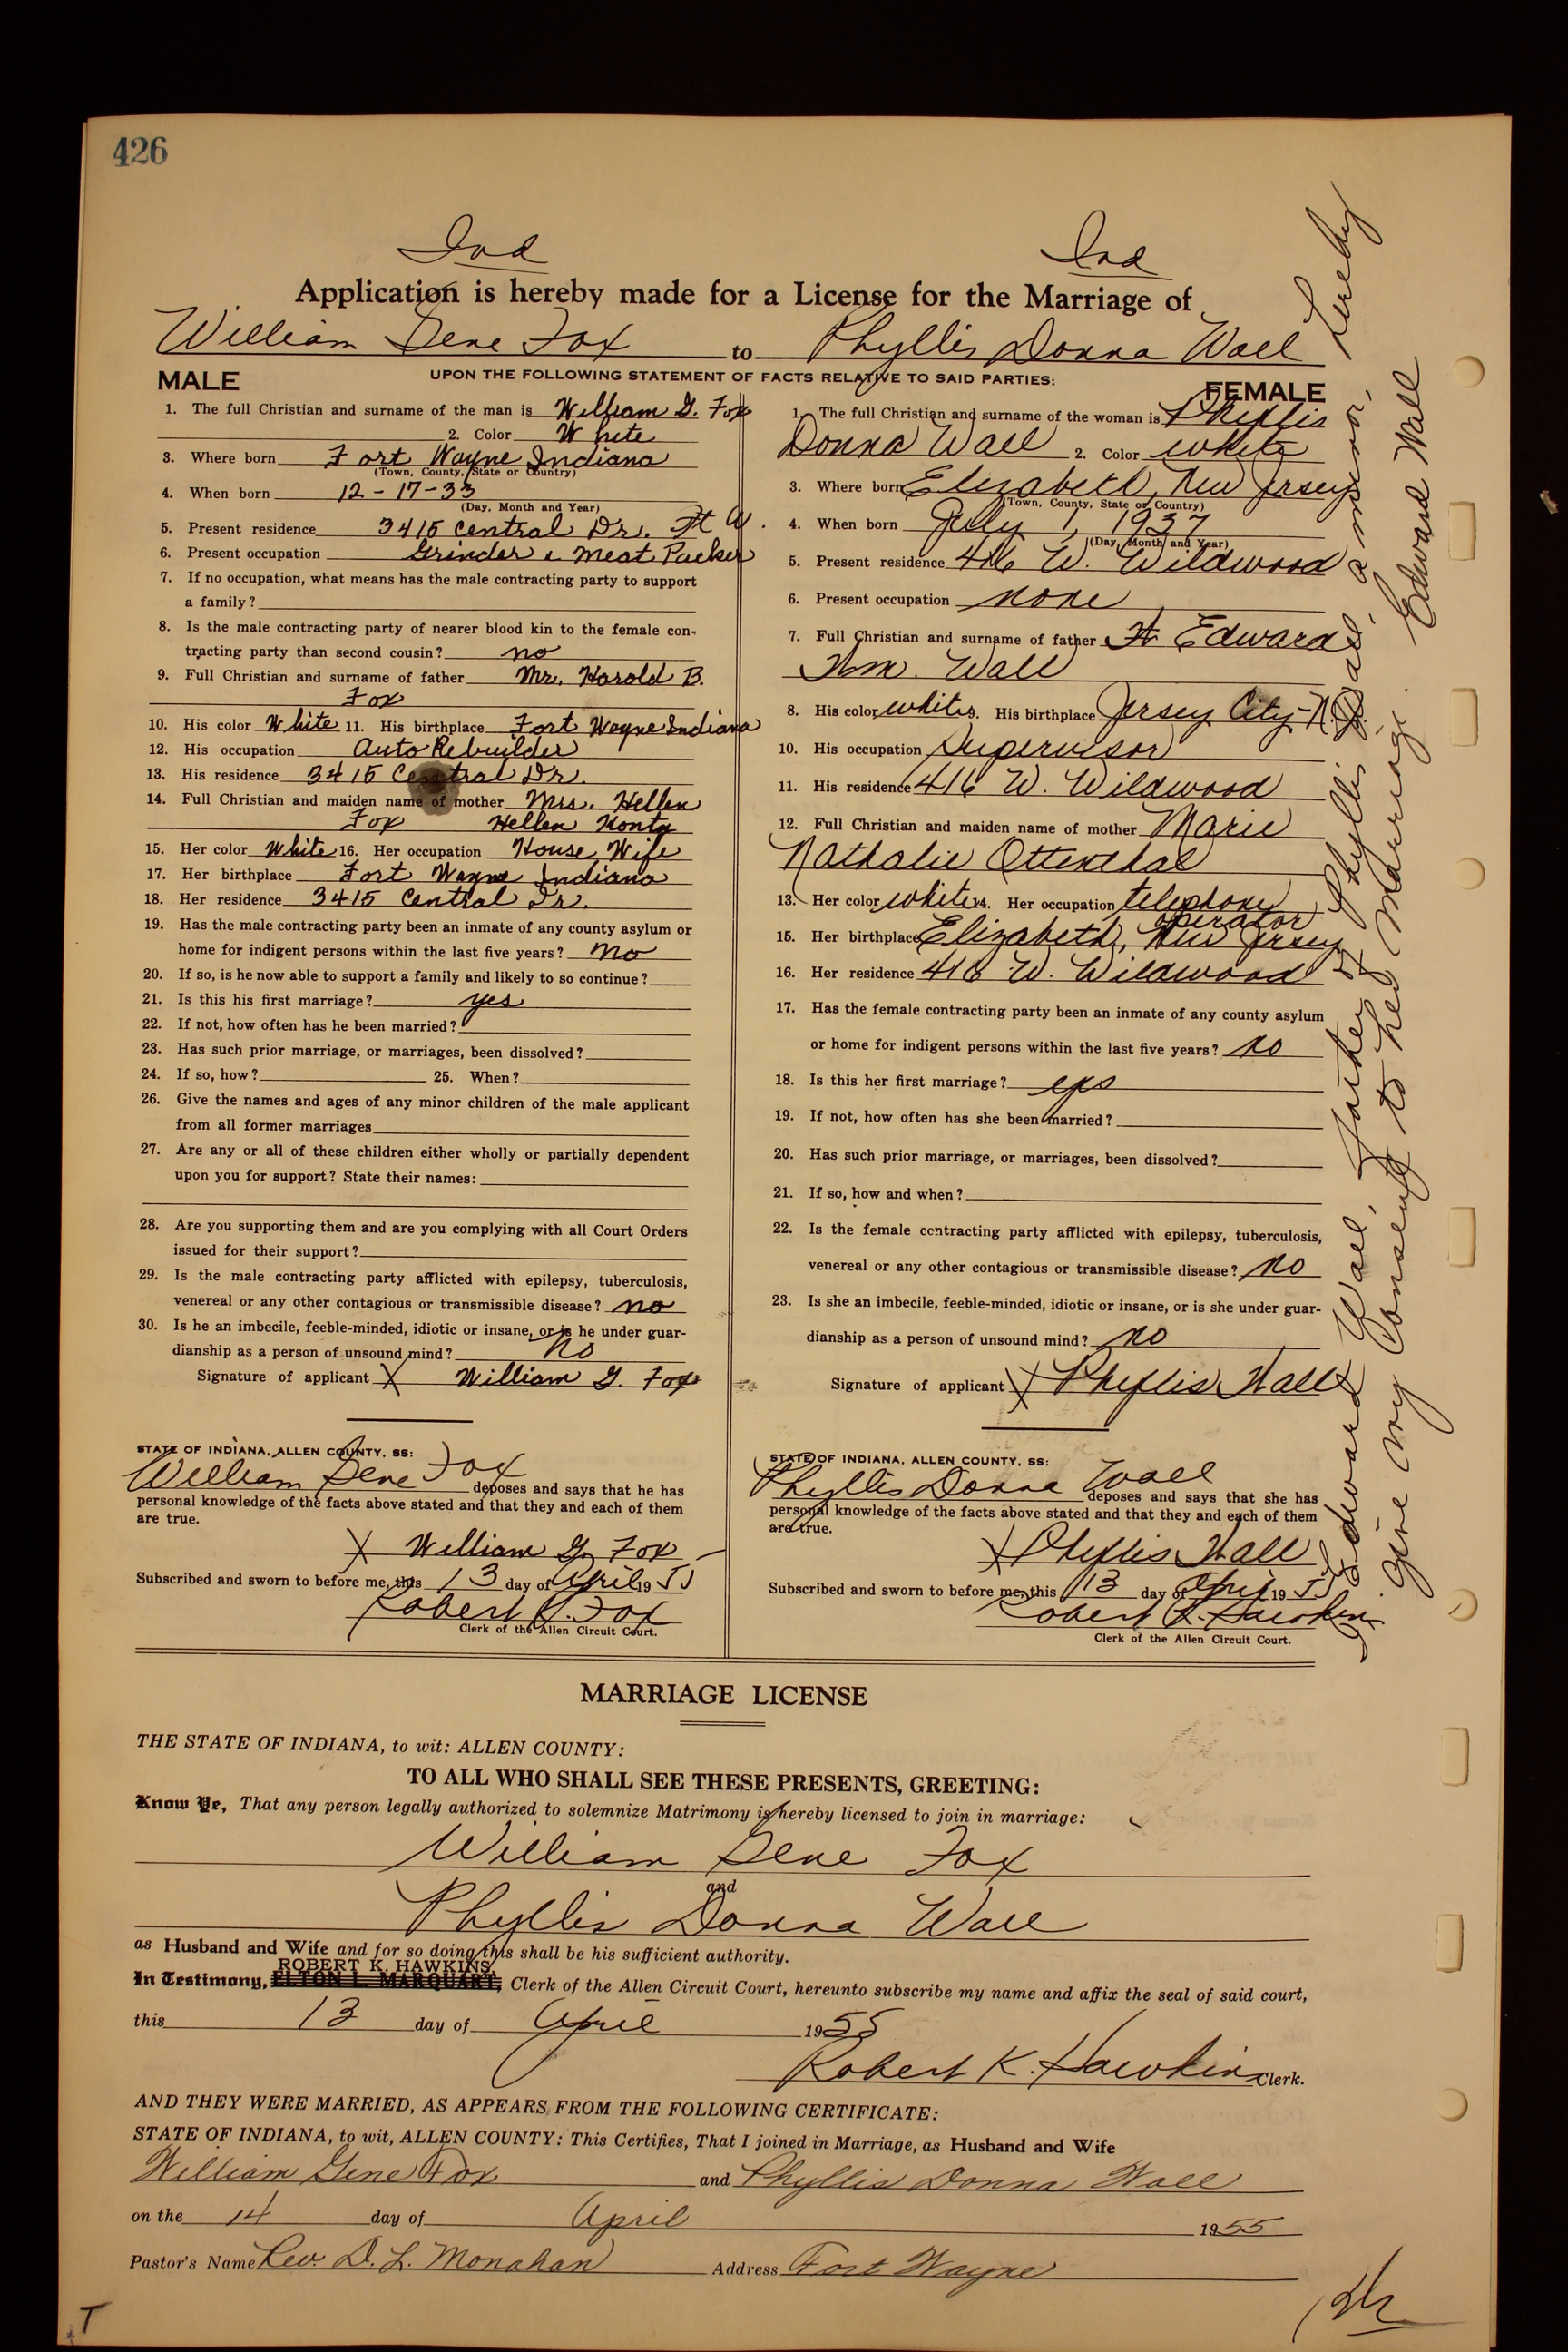 426
Ind Ind
Application is hereby made for a License for the Marriage of
William Gene Fox to Phyllis Donna Wall
UPON THE FOLLOWING STATEMENT OF FACTS RELATIVE TO SAID PARTIES:
MALE
1. The full Christian and surname of the man is William G. Fox
2. Color White
3. Where born Fort Wayne Indiana
(Town, County, State or Country)
4. When born 12-17-33
(Day, Month and Year)
5. Present residence 3415 Central Dr. Ft W.
6. Present occupation Grinder & Meat Packer
7. If no occupation, what means has the male contracting party to support
a family?
8. Is the male contracting party of nearer blood kin to the female con-
tracting party than second cousin? no
9. Full Christian and surname of father Mr. Harold B.
Fox
10. His color White 11. His birthplace Fort Wayne Indiana
12. His occupation Auto Rebuilder
13. His residence 3415 Central Dr.
14. Full Christian and maiden name of mother Mrs. Hellen
Fox Hellen
15. Her color White 16. Her occupation House Wife
17. Her birthplace Fort Wayne Indiana
18. Her residence 3415 Central Dr.
19. Has the male contracting party been an inmate of any county asylum or
home for indigent persons within the last five years? no
20. If so, is he now able to support a family and likely to so continue?
21. Is this his first marriage? yes
22. If not, how often has he been married?
23. Has such prior marriage, or marriages, been dissolved?
24. If so, how? 25. When?
26. Give the names and ages of any minor children of the male applicant
from all former marriages
27. Are any or all of these children either wholly or partially dependent
upon you for support? State their names:
28. Are you supporting them and are you complying with all Court Orders
issued for their support?
29. Is the male contracting party afflicted with epilepsy, tuberculosis,
venereal or any other contagious or transmissible disease? no
30. Is he an imbecile, feeble-minded, idiotic or insane, or is he under guar-
dianship as a person of unsound mind? no
Signature of applicant X William G. Fox
STATE OF INDIANA, ALLEN COUNTY, SS:
William Gene Fox deposes and says that he has
personal knowledge of the facts above stated and that they and each of them
are true.
X William G. Fox
Subscribed and sworn to before me, this 13 day of April 1955
Robert Fox
Clerk of the Allen Circuit Court.
FEMALE
1. The full Christian and surname of the woman is Phyllis
Donna Wall 2. Color white
3. Where born Elizabeth, New Jersey
(Town, County, State or Country)
4. When born July 1, 1937
(Day, Month and Year)
5. Present residence 416 W. Wildwood
6. Present occupation none
7. Full Christian and surname of father Edward
Wm. Wall
8. His color white 9. His birthplace Jersey City-N.J.
10. His occupation Supervisor
11. His residence 416 W. Wildwood
12. Full Christian and maiden name of mother Marie
Nathalie Ottenthal
13. Her color white 14. Her occupation telephone
operator
15. Her birthplace Elizabeth, New Jersey
16. Her residence 416 W. Wildwood
17. Has the female contracting party been an inmate of any county asylum
or home for indigent persons within the last five years? no
18. Is this her first marriage? yes
19. If not, how often has she been married?
20. Has such prior marriage, or marriages, been dissolved?
21. If so, how and when?
22. Is the female contracting party afflicted with epilepsy, tuberculosis,
venereal or any other contagious or transmissible disease? no
23. Is she an imbecile, feeble-minded, idiotic or insane, or is she under guar-
dianship as a person of unsound mind? no
Signature of applicant X Phyllis Wall
STATE OF INDIANA, ALLEN COUNTY, SS:
Phyllis Donna Wall deposes and says that she has
personal knowledge of the facts above stated and that they and each of them
are true.
X Phyllis Wall
Subscribed and sworn to before me, this 13 day of April 1955
Robert K. Hawkins
Clerk of the Allen Circuit Court.
I, Edward Wall, father of Phyllis Wall, a minor, hereby
give my consent to her marriage. Edward Wall
MARRIAGE LICENSE
THE STATE OF INDIANA, to wit: ALLEN COUNTY:
TO ALL WHO SHALL SEE THESE PRESENTS, GREETING:
Know Ye, That any person legally authorized to solemnize Matrimony is hereby licensed to join in marriage:
William Gene Fox
and
Phyllis Donna Wall
as Husband and Wife and for so doing this shall be his sufficient authority.
ROBERT K. HAWKINS
In Testimony, ELTON L. MARQUART, Clerk of the Allen Circuit Court, hereunto subscribe my name and affix the seal of said court,
this 13 day of April 1955
Robert K. Hawkins Clerk.
AND THEY WERE MARRIED, AS APPEARS FROM THE FOLLOWING CERTIFICATE:
STATE OF INDIANA, to wit, ALLEN COUNTY: This Certifies, That I joined in Marriage, as Husband and Wife
William Gene Fox and Phyllis Donna Wall
on the 14 day of April 1955
Pastor's Name Rev. D. L. Monahan Address Fort Wayne
T